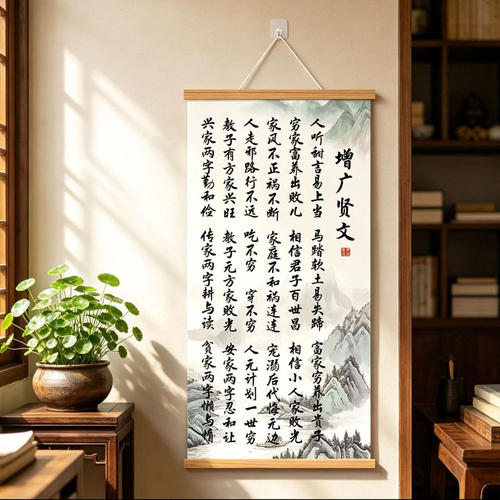 增广贤文
人听甜言易上当 马踏软土易失蹄 富家穷养出贵子
穷家富养出败儿 相信君子百世昌 相信小人家败光
家风不正祸不断 家庭不和祸连连 宠溺后代悔无边
人走邪路行不远 吃不穷 穿不穷 人无计划一世穷
教子有方家兴旺 教子无方家败光 安家两字忍和让
兴家两字勤和俭 传家两字耕与读 貪家两字懒与惰